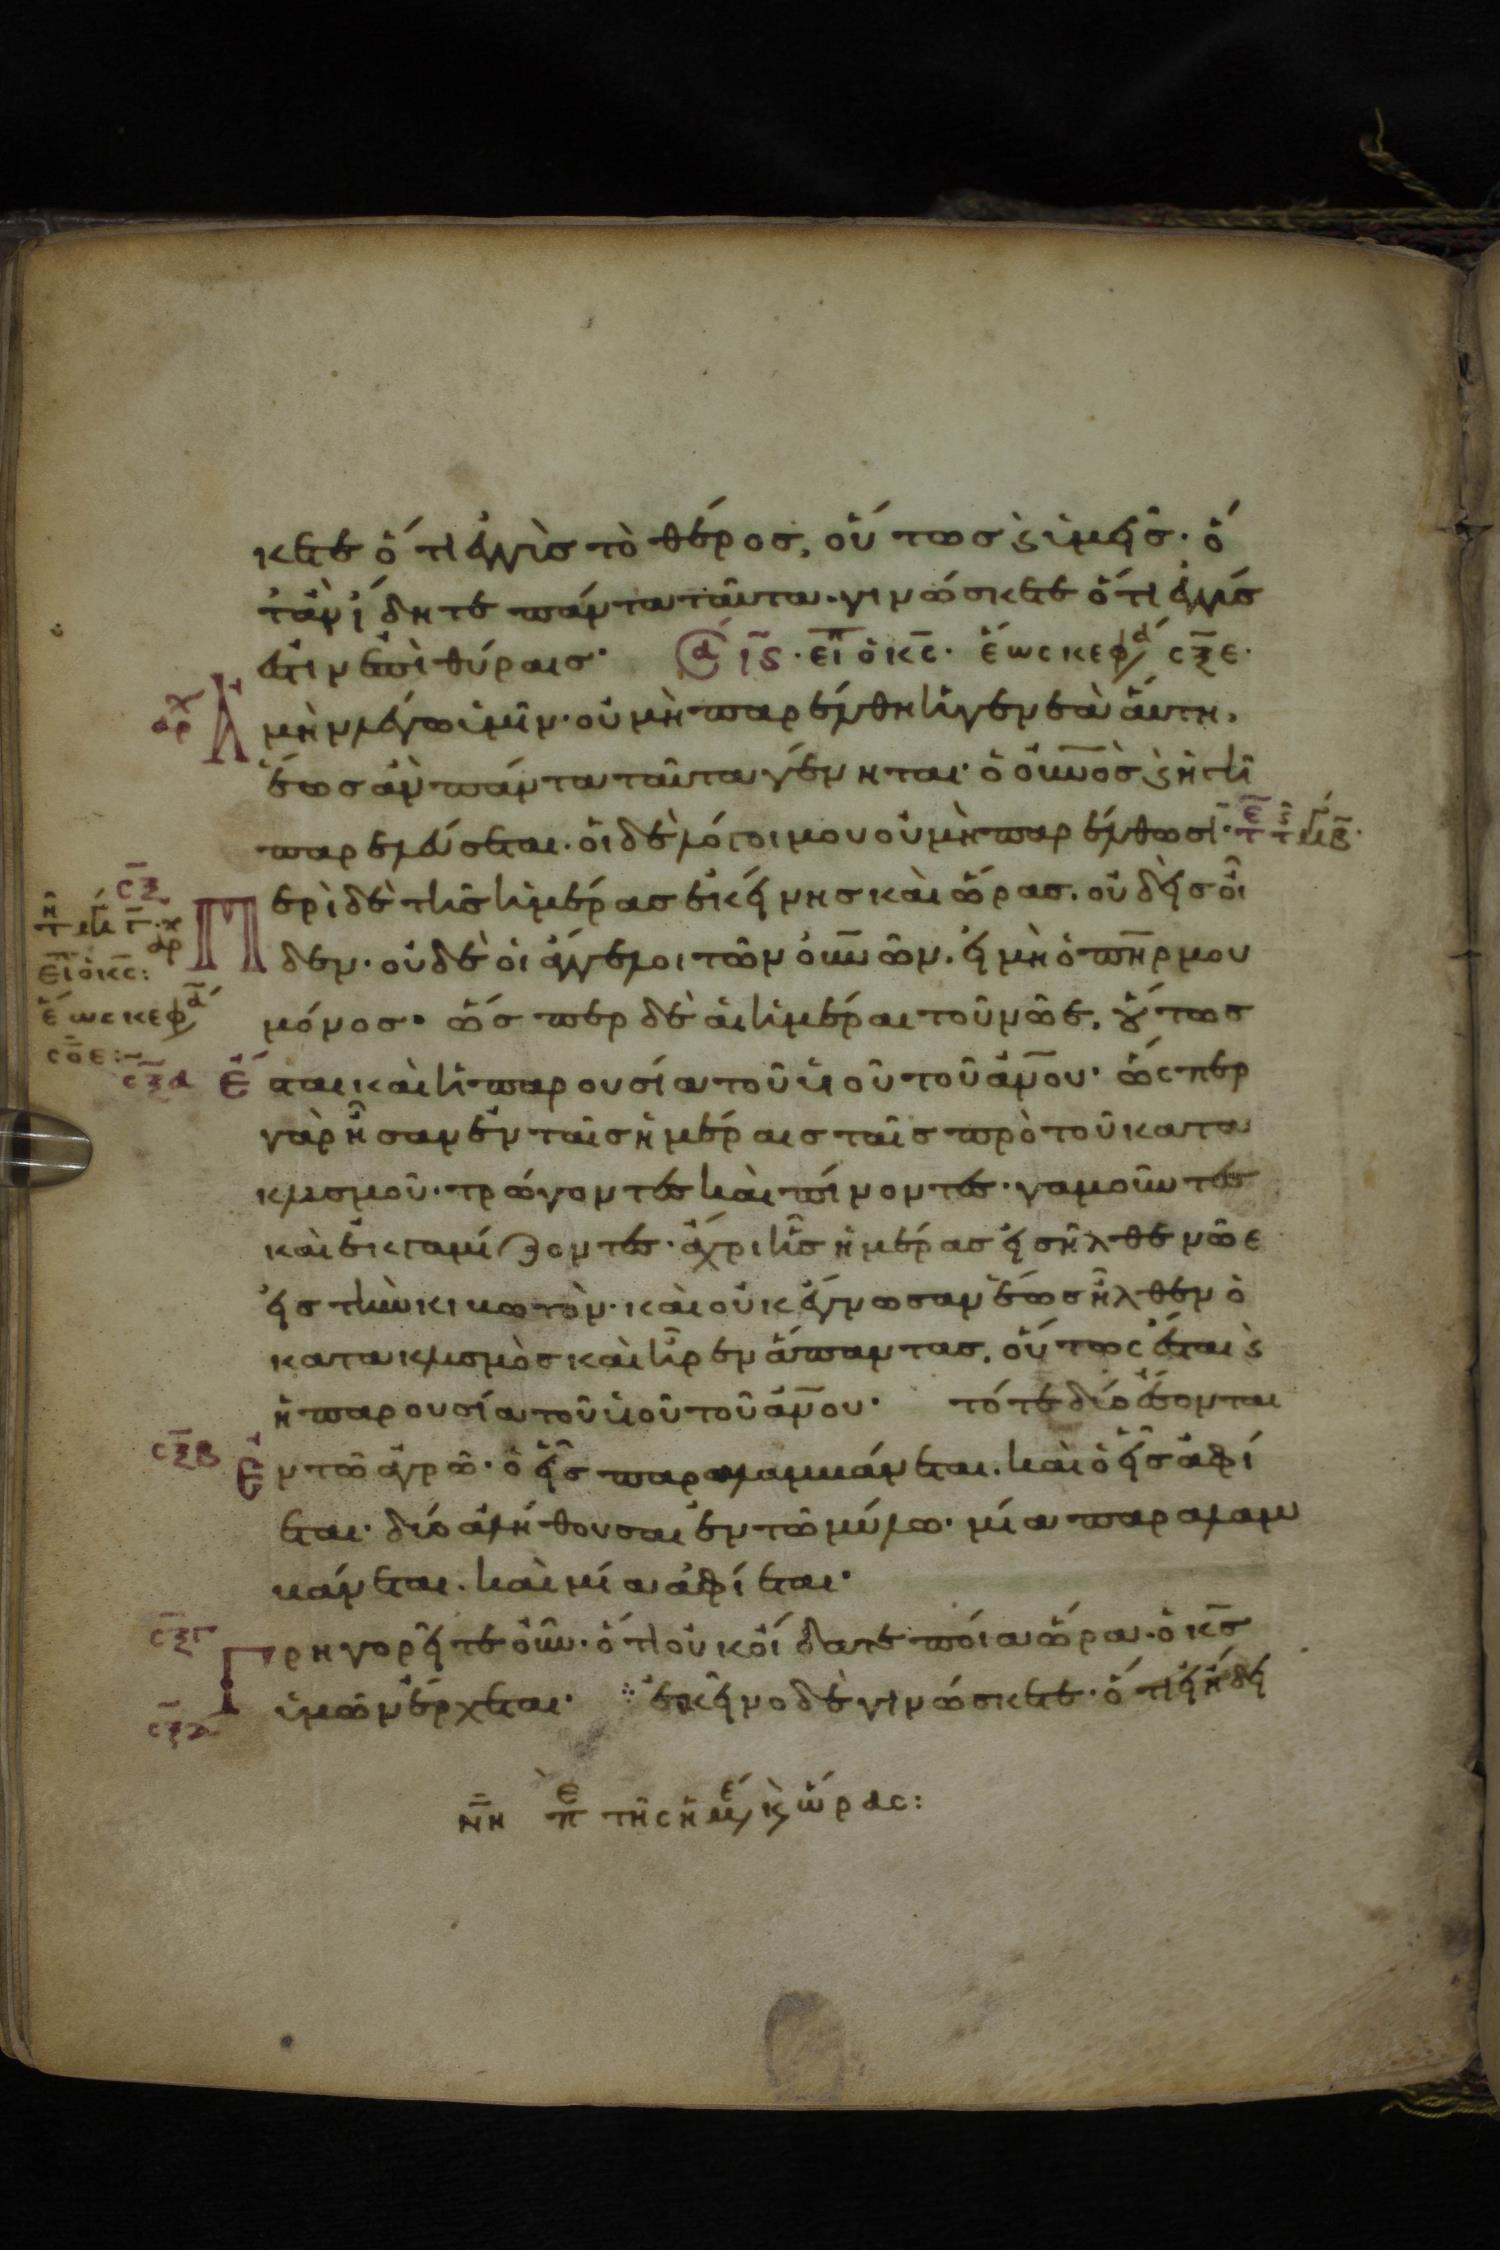 κετε ὅτι ἐγγὺς τὸ θέρος, οὕτως ϗ ὑμεῖς· ὅ
ταν ἴδητε πάντα ταῦτα· γινώσκετε ὅτι ἐγγύς
ἐστιν ἐπὶ θύραις· ιϛ · εἶπ ὁ κς · ἕως κεφ σξε ·
ἀρχ Ἀμὴν λέγω ὑμῖν· οὐ μὴ παρέλθη ἡ γενεὰ αὕτη,
ἕως ἂν πάντα ταῦτα γένηται· ὁ οὐνος ϗ ἡ γῆ
παρελεύσεται· οἱ δὲ λόγοι μου οὐ μὴ παρέλθωσῖ·
σξ
Περὶ δὲ τῆς ἡμέρας ἐκείνης καὶ ὥρας. οὐδεὶς οἶ
δεν· οὐδὲ οἱ ἄγγελοι τῶν οὐνῶν. εἰ μὴ ὁ πηρ μου
εἶπ ὁ κς:
ἕως κεφ
σοε:
μόνος· ὥσπερ δὲ αἱ ἡμέραι τοῦ νῶε, οὕτως
σξα ἔσται καὶ ἡ παρουσία τοῦ υἱοῦ τοῦ ἀνου· ὥσπερ
γὰρ ἦσαν ἐν ταῖς ἡμέραις ταῖς πρὸ τοῦ κατα
κλυσμοῦ· τρώγοντες καὶ πίνοντες· γαμοῦντες
καὶ ἐκγαμίζοντες· ἄχρι ἧς ἡμέρας εἰσῆλθε νῶε
εἰς τὴν κιβωτὸν· καὶ οὐκ ἔγνωσαν ἕως ἦλθεν ὁ
κατακλυσμὸς καὶ ἦρεν ἅπαντας, οὕτως ἔσται ϗ
ἡ παρουσία τοῦ υἱοῦ τοῦ ἀνου· τότε δύο ἔσονται
σξβ ἐν τῶ ἀγρῶ· ὁ εἷς παραλαμβάνεται. καὶ ὁ εἷς ἀφί
εται· δύο ἀλήθουσαι ἐν τῶ μύλω· μία παραλαμ
βάνεται. καὶ μία ἀφίεται·
σξγ Γρηγορεῖτε οὖν· ὅτι οὐκ οἴδατε ποία ὥρα· ὁ κς
σξδ ὑμῶν ἔρχεται· ἐκεῖνο δὲ γινώσκετε· ὅτι εἰ ἤδει
τῆς ἡμέ ϗ ὥρας: